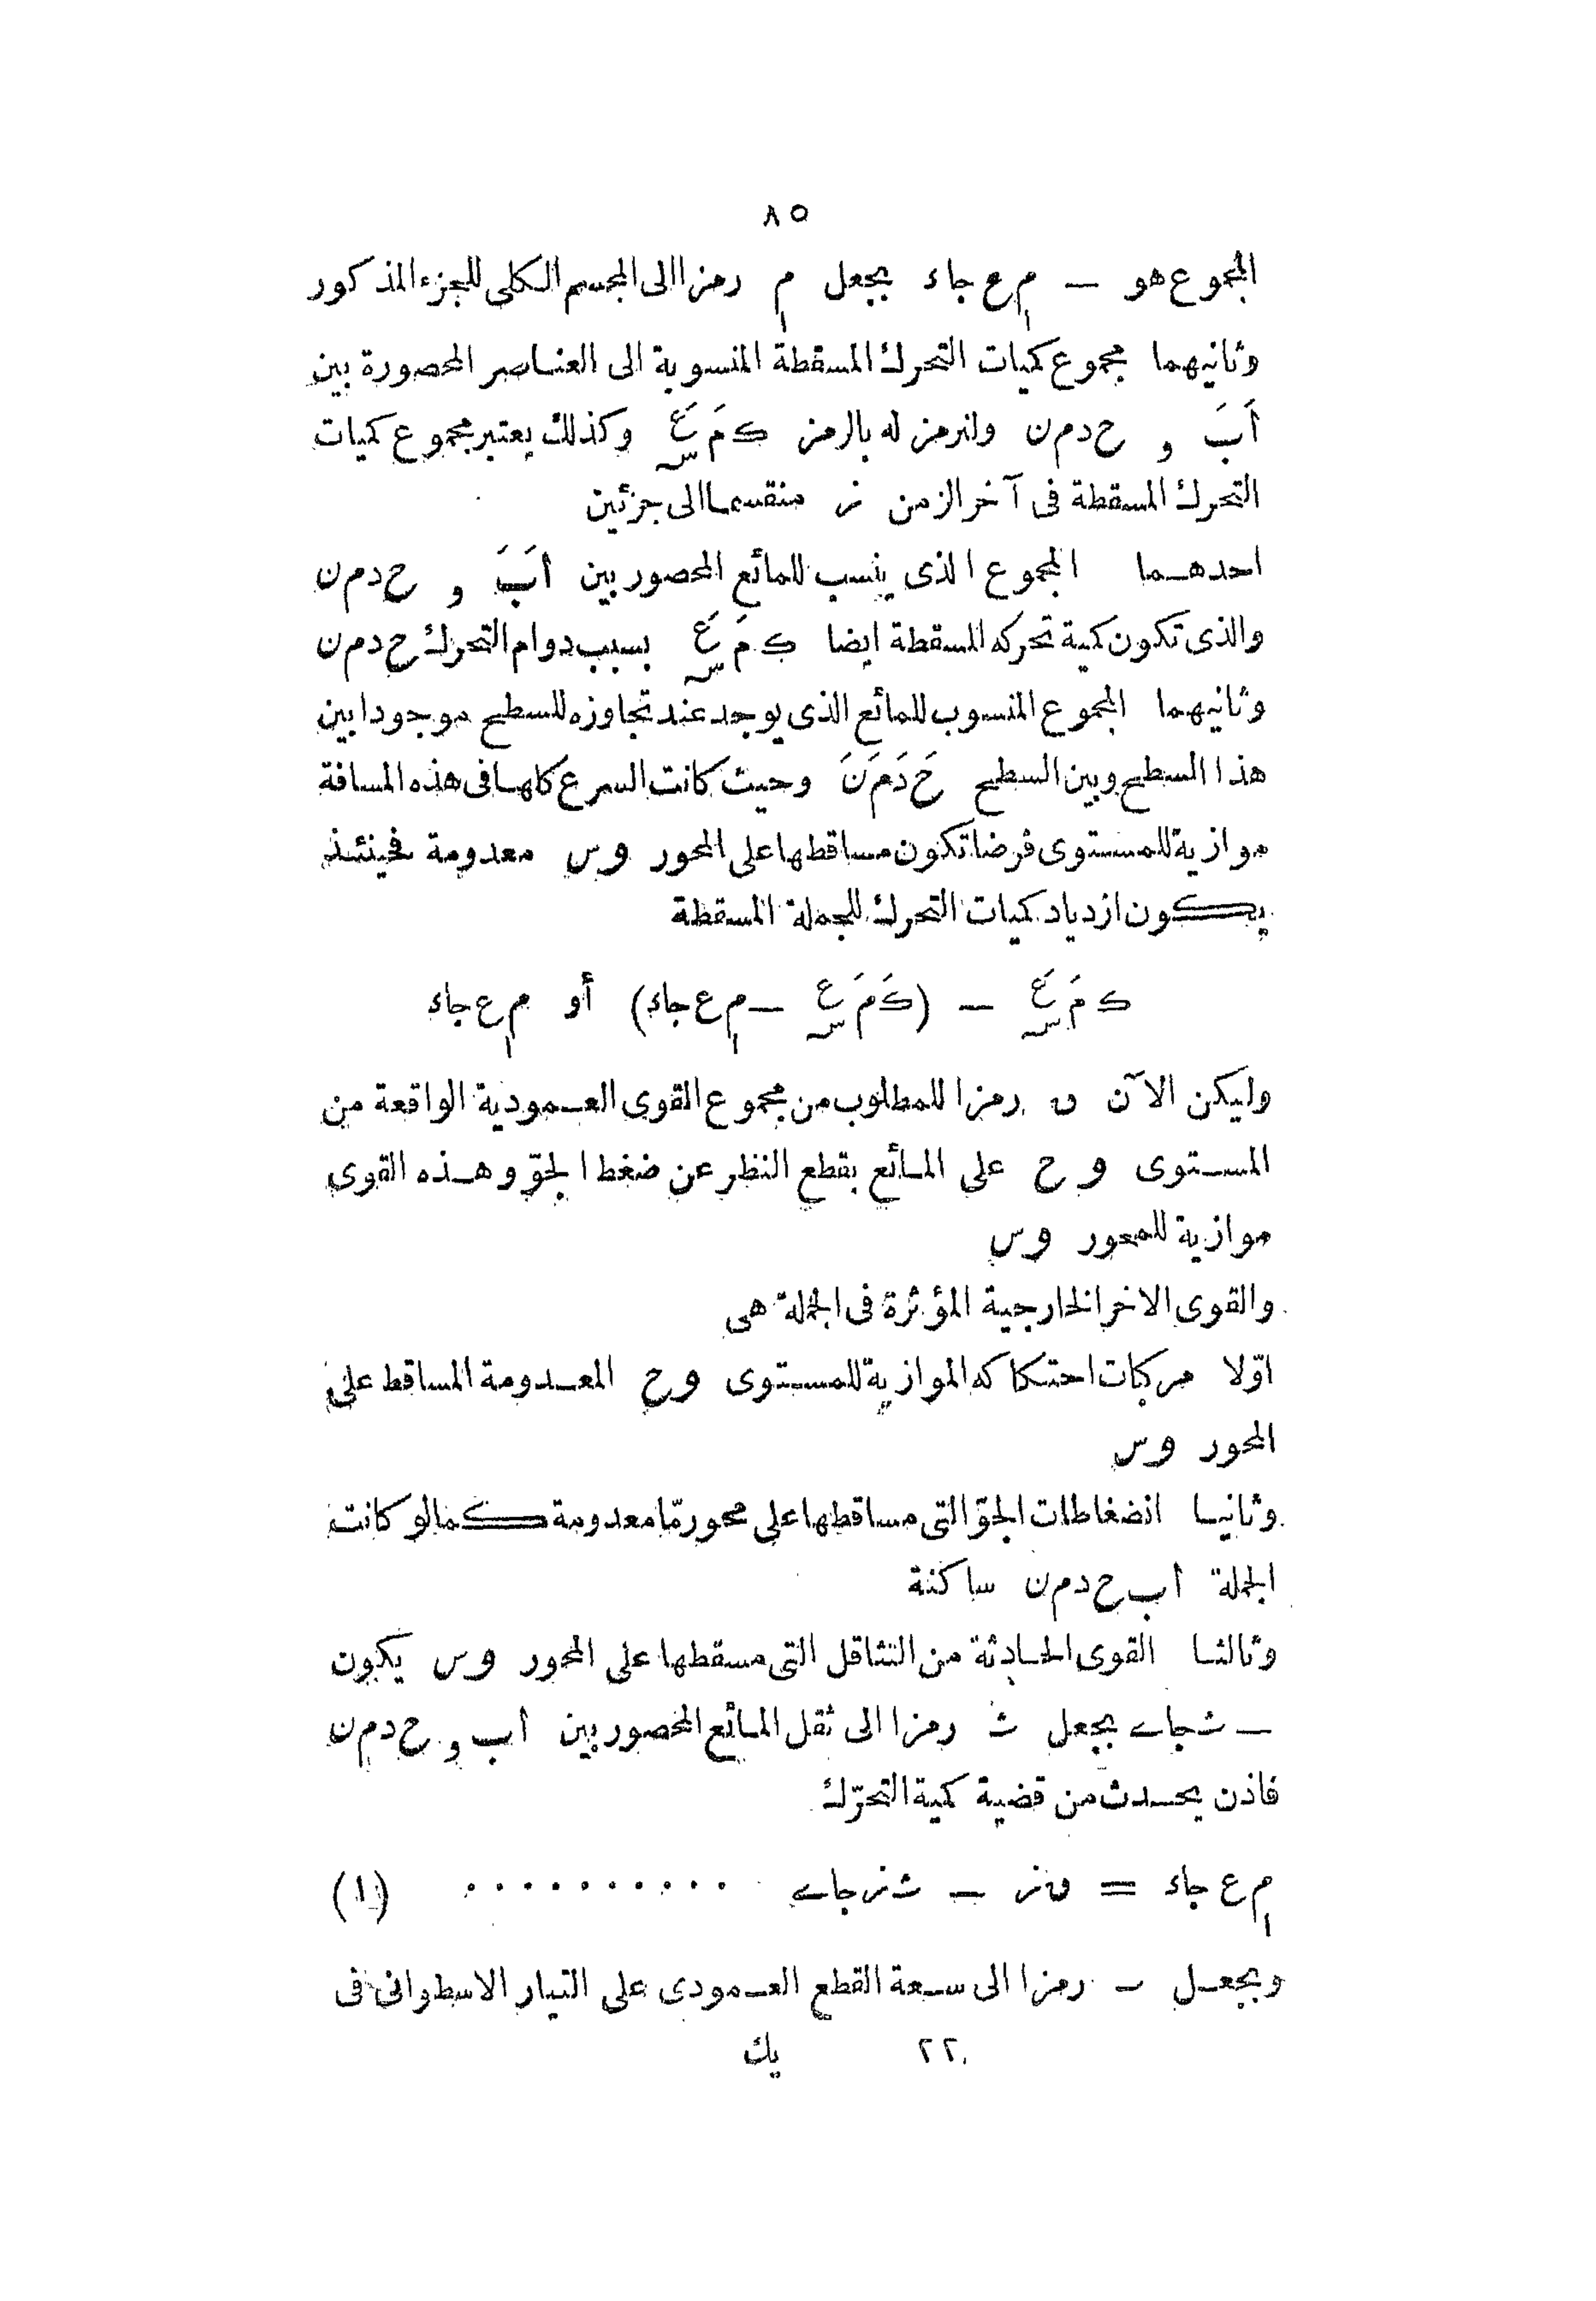 ٨٥
المجموع هو — م₁ ع جاء بجعل م₁ رمزا الى المجسم الكلى للجزء المذكور
وثانيهما مجموع كميات التحرك المسقطة المنسوبة الى العناصر المحصورة بين
اَبَ و ح د م ن ولنرمز له بالرمز ك مَ عَس وكذلك يعتبر مجموع كميات
التحرك المسقطة فى آخر الزمن ز منقسما الى جزئين
احدهما المجموع الذى ينسب للمائع المحصور بين اَبَ و ح د م ن
والذى تكون كمية تحركه المسقطة ايضا ك مَ عَس بسبب دوام التحرك ح د م ن
وثانيهما المجموع المنسوب للمائع الذى يوجد عند تجاوزه للسطح موجودا بين
هذا السطح وبين السطح حَ دَ مَ نَ وحيث كانت السرع كلها فى هذه المسافة
موازية للمستوى فرضا تكون مساقطها على المحور وس معدومة فحينئذ
يكون ازدياد كميات التحرك للجملة المسقطة
ك مَ عَس — (ك مَ عَس — م₁ ع جاء) أو م₁ ع جاء
وليكن الآن ق رمزا للمطلوب من مجموع القوى العمودية الواقعة من
المستوى وح على المائع بقطع النظر عن ضغط الجوّ وهذه القوى
موازية للمحور وس
والقوى الاخر الخارجية المؤثرة فى الجملة هى
اوّلا مركبات احتكاكه الموازية للمستوى وح المعدومة المساقط على
المحور وس
وثانيا انضغاطات الجوّ التى مساقطها على محور مّا معدومة كما لو كانت
الجملة ا ب ح د م ن ساكنة
وثالثا القوى الحادثة من التثاقل التى مسقطها على المحور وس يكون
— ث جاے بجعل ث رمزا الى ثقل المائع المحصور بين اب و ح د م ن
فاذن يحدث من قضية كمية التحرّك
م₁ ع جاء = ق ز — ث ز جاے .......... (١)
وبجعل ـ رمزا الى سعة القطع العمودى على التيار الاسطوانى فى
٢٢ يك